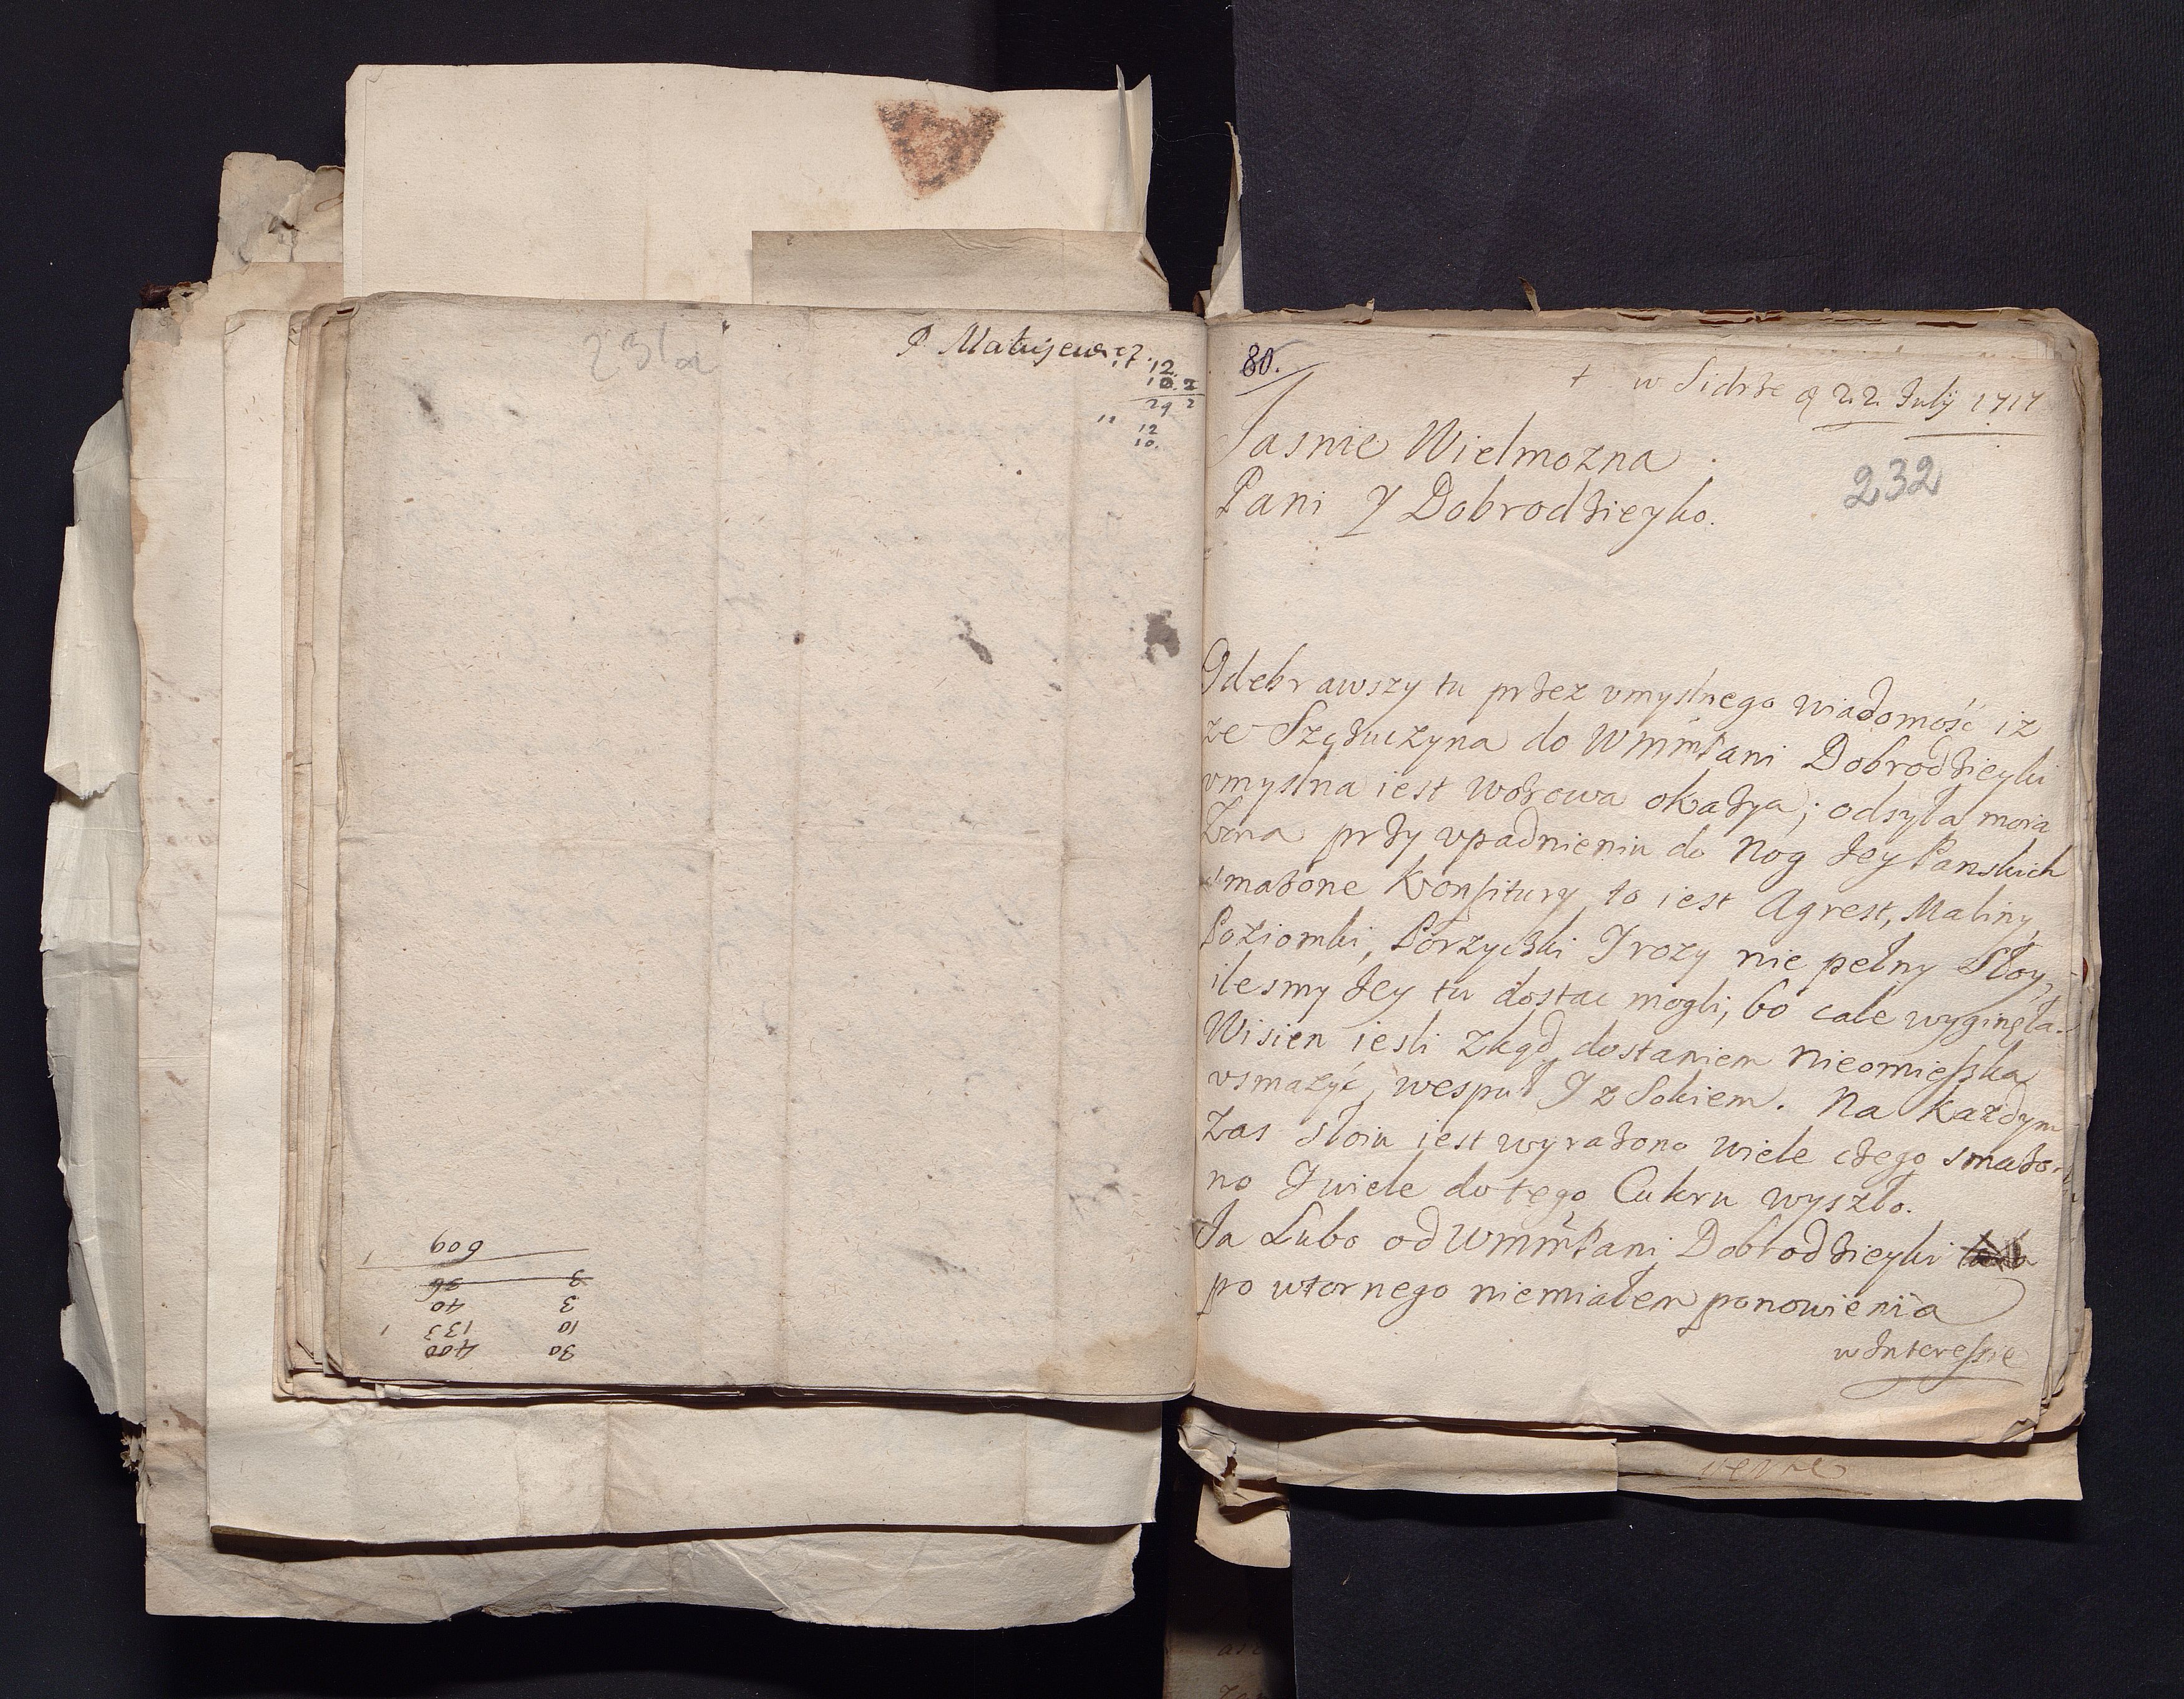 231a
P Matujewicz.
12
10. 2
29 2
11
12
10.
609
3 36
3 40
10 133 1
30 400
80.
+ w Sidrze d 22 July 1717
232
Jasnie Wielmozna
Pani Y Dobrodzieyko.
Odebrawszy tu przez vmyslnego wiadomość iz
ze Szczuczyna do WMMPani Dobrodzieyki
vmyslna iest wozowa okazya; odsyła moia
Zona przy vpadnieniu do Nog Jey Panskich
smazone Konfitury, to iest Agrest, Maliny,
Poziomki, Porzyczki Y rozy nie pełny Słoy,
ilesmy Jey tu dostac mogli, bo cale wyginęła.
Wisien iesli zkąd dostaniem nieomieszka
vsmazyć, wespuł Y z Sokiem. Na Kazdym
zas słoiu iest wyrazono wiele czego smazo-
no Y wiele do tego Cukru wyszło.
Ja Lubo od WMMPani Dobrodzieyki
po wtornego niemiałem ponowienia
w Interessie